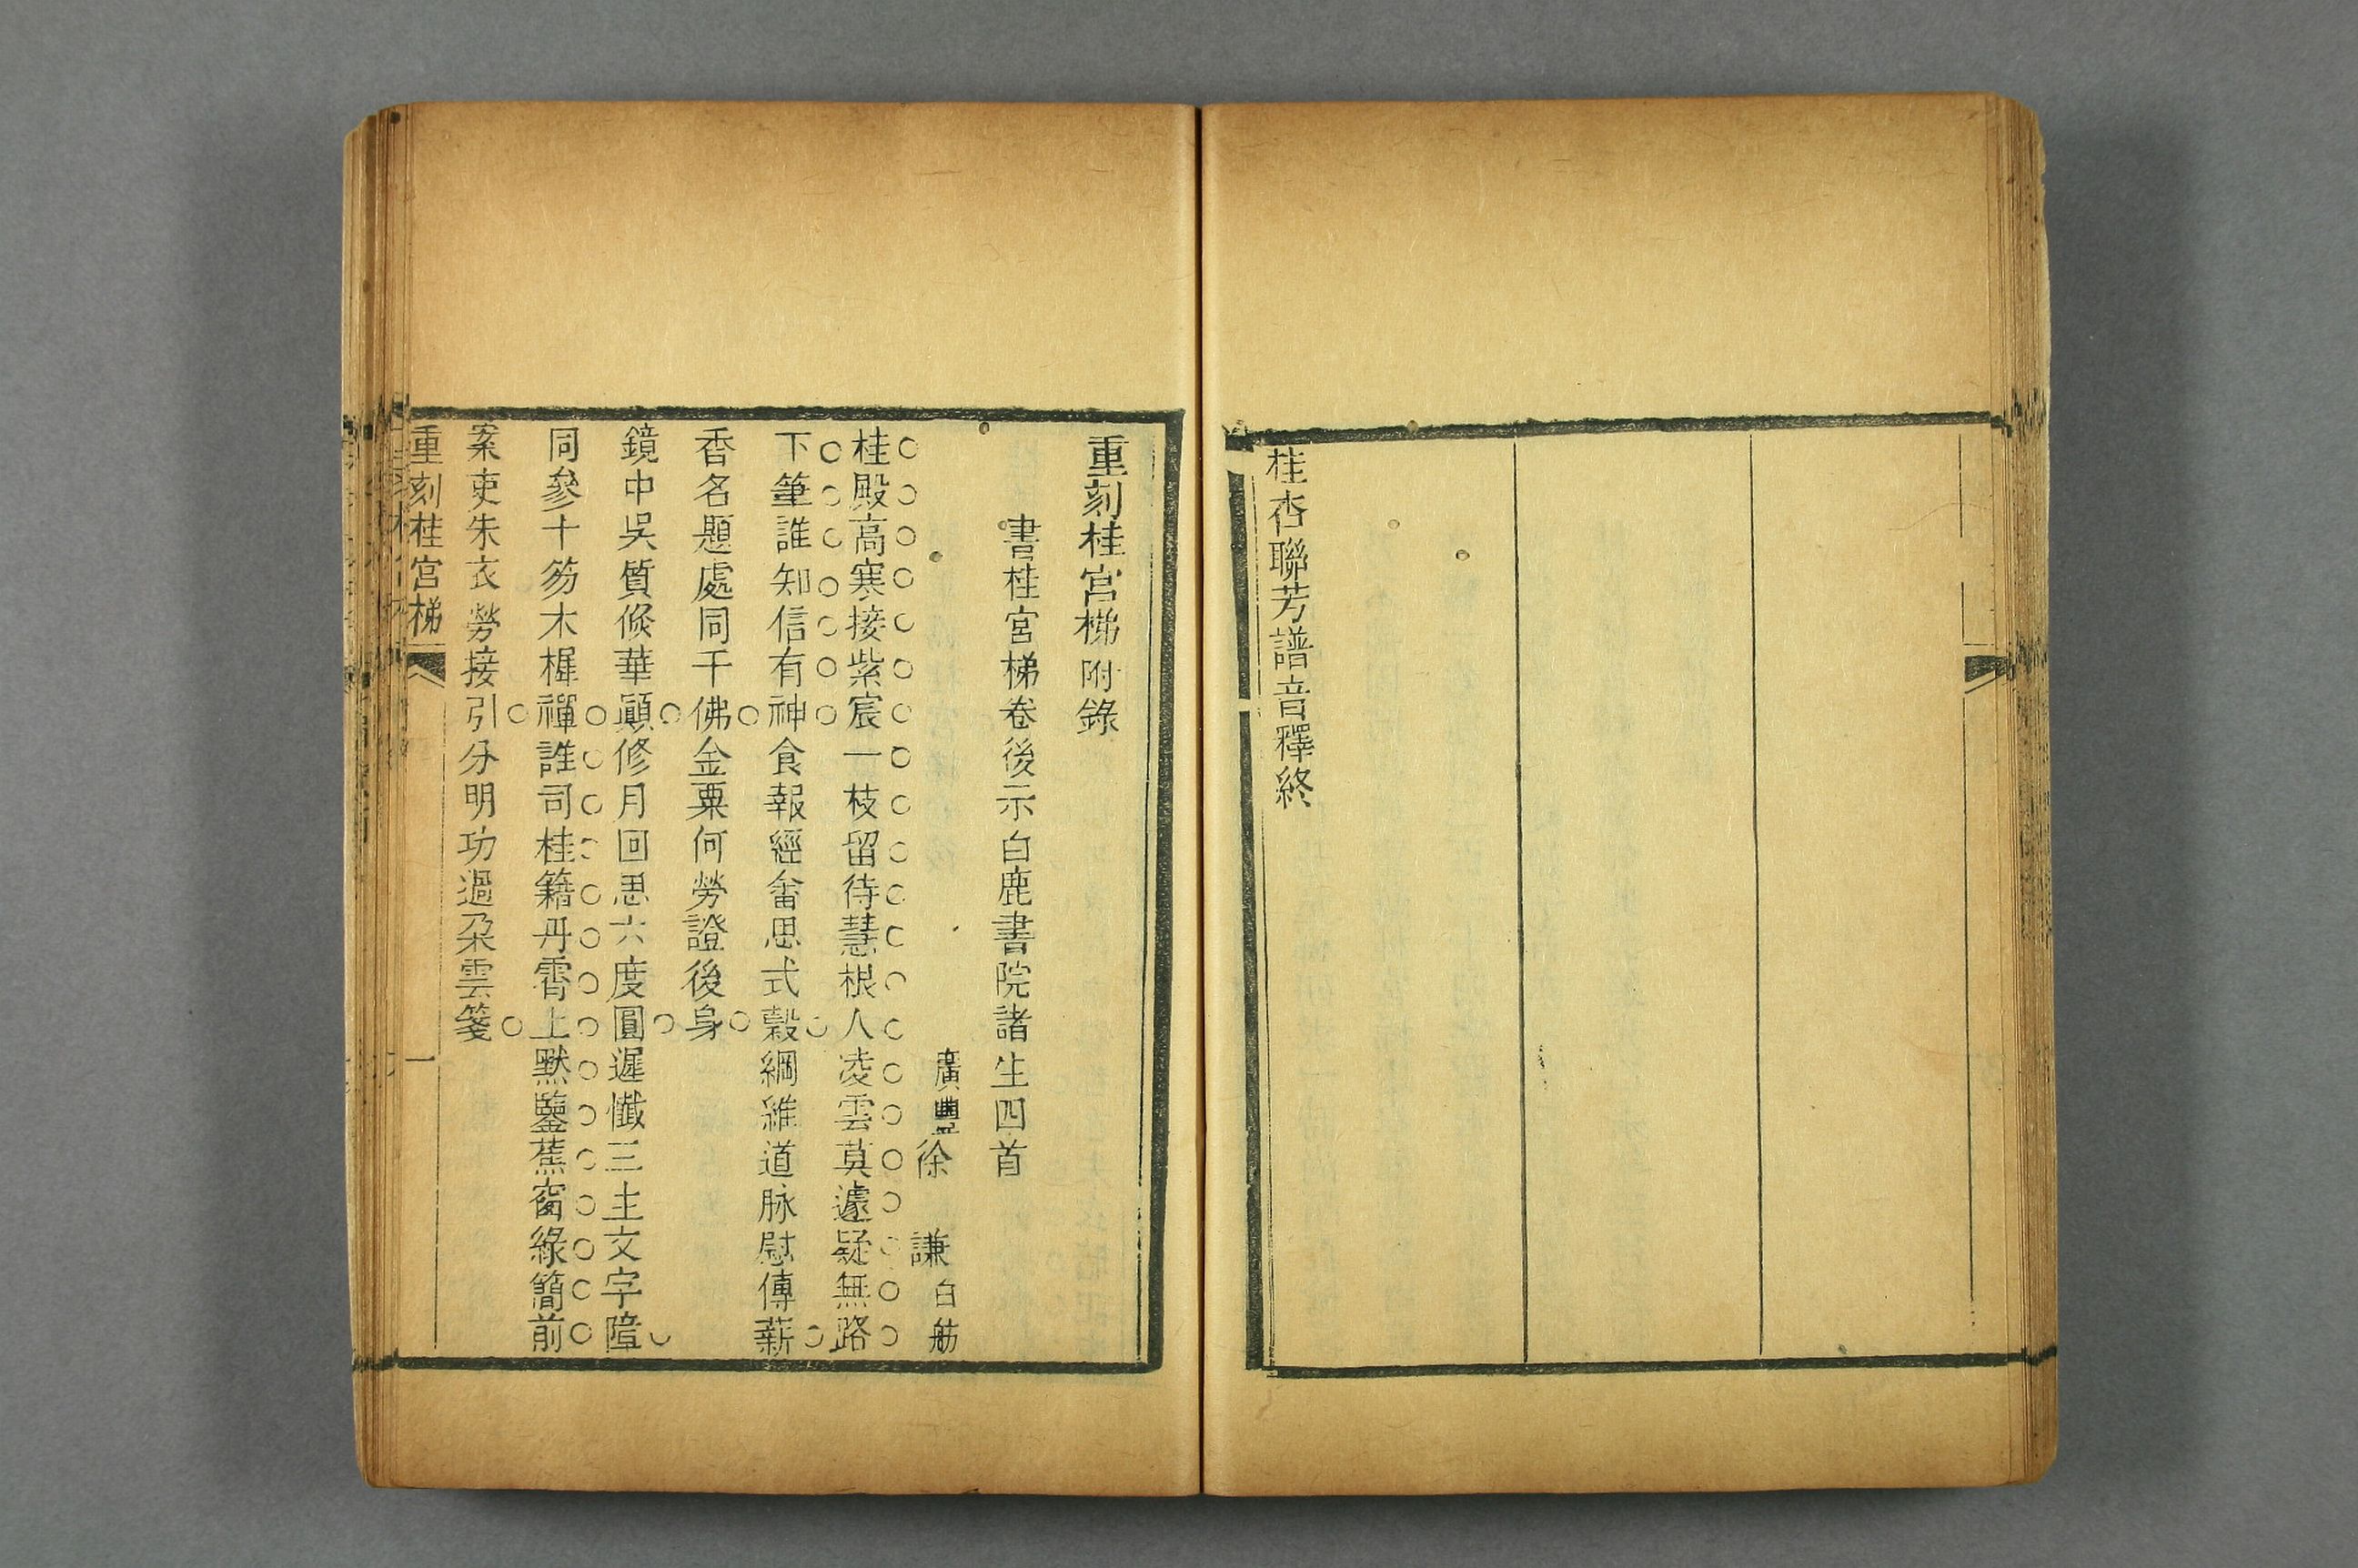 桂杏聯芳譜音釋終
重刻桂宮梯附錄
書桂宮梯卷後示白鹿書院諸生四首
廣豐徐謙白舫
桂殿高寒接紫宸一枝留待慧根人凌雲莫遽疑無路
下筆誰知信有神食報經畬思式穀綱維道脉慰傳薪
香名題處同千佛金粟何勞證後身
鏡中吳質倏華顚修月回思六度圓遲懺三生文字障
同參十笏木樨禪誰司桂籍丹霄上默鑒蕉窗綠簡前
案吏朱衣勞接引分明功過朶雲箋
重刻桂宮梯
一